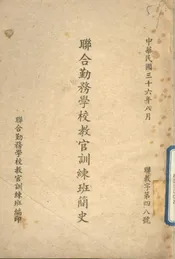 中華民國三十六年八月
聯義字第四八號
聯合勤務學校教官訓練班簡史
聯合勤務學校教官訓練班編印